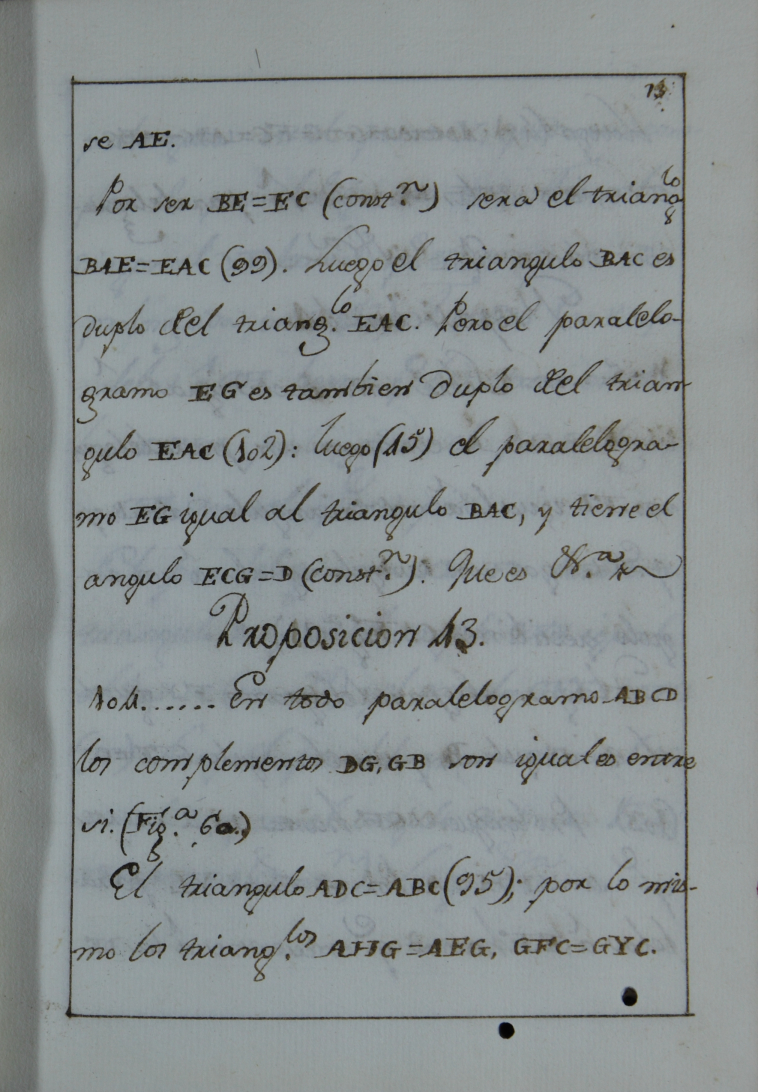 13
se AE.
Por ser BE=EC (const.n) sera el triang.lo
BAE=EAC (99). Luego el triangulo BAC es
duplo del triang.lo EAC. Pero el paralelo-
gramo EG es tambien duplo del trian-
gulo EAC (102): luego (15) el paralelogra-
mo EG igual al triangulo BAC, y tiene el
angulo ECG=D (const.n). Que es &.a
Proposicion 43.
104...... En todo paralelogramo ABCD
los complementos DG, GB son iguales entre
si. (Fig.a 60.)
El triangulo ADC=ABC (95); por lo mis-
mo los triang.los AHG=AEG, GFC=GYC.